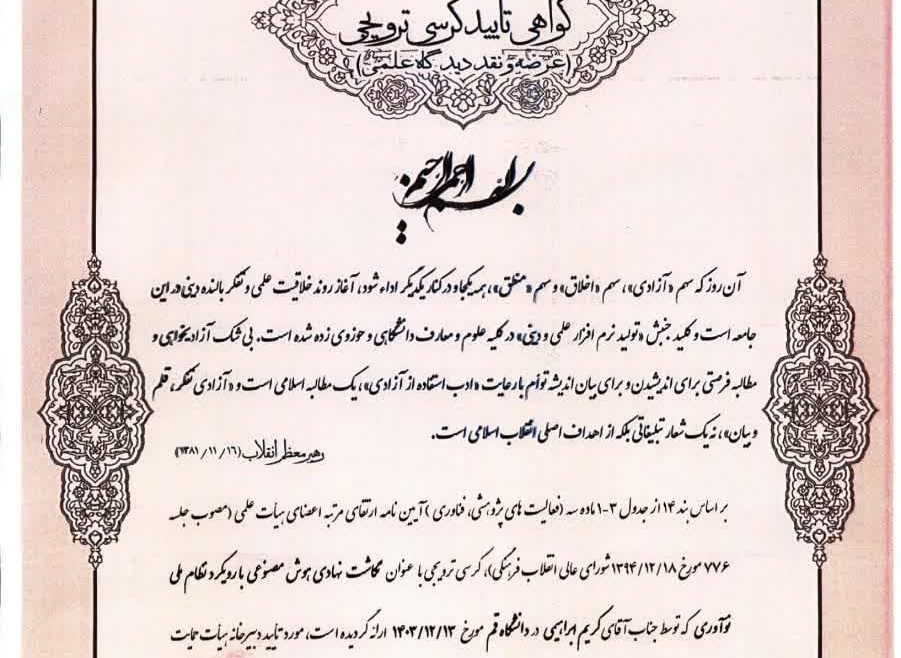 گواهی تایید کرسی ترویجی
(عرضه و نقد دیدگاه علمی)
بسم الله الرحمن الرحیم
آن روز که سهم «آزادی»، سهم «اخلاق» و سهم «منطق»، همه یکجا و در کنار یکدیگر اداء شود، آغاز روند خلاقیت علمی و تفکر بالنده دینی در این
جامعه است و کلید جنبش «تولید نرم افزار علمی و دینی» در کلیه علوم و معارف دانشگاهی و حوزوی زده شده است. بی شک آزادیخواهی و
مطالبه فرصتی برای اندیشیدن و برای بیان اندیشه توأم با رعایت «ادب استفاده از آزادی»، یک مطالبه اسلامی است و «آزادی تفکر، قلم
و بیان»، نه یک شعار تبلیغاتی بلکه از اهداف اصلی انقلاب اسلامی است.
رهبر معظم انقلاب (۱۳۸۱/۱۱/۱۶)
بر اساس بند ۱۴ از جدول ۳-۱ ماده سه (فعالیت های پژوهشی، فناوری) آیین نامه ارتقای مرتبه اعضای هیأت علمی (مصوب جلسه
۷۷۶ مورخ ۱۳۹۴/۱۲/۱۸ شورای عالی انقلاب فرهنگی)، کرسی ترویجی با عنوان نگاشت نهادی هوش مصنوعی با رویکرد نظام ملی
نوآوری که توسط جناب آقای کریم ابراهیمی در دانشگاه قم مورخ ۱۴۰۳/۱۲/۱۳ ارائه گردیده است، مورد تأیید دبیرخانه هیأت حمایت